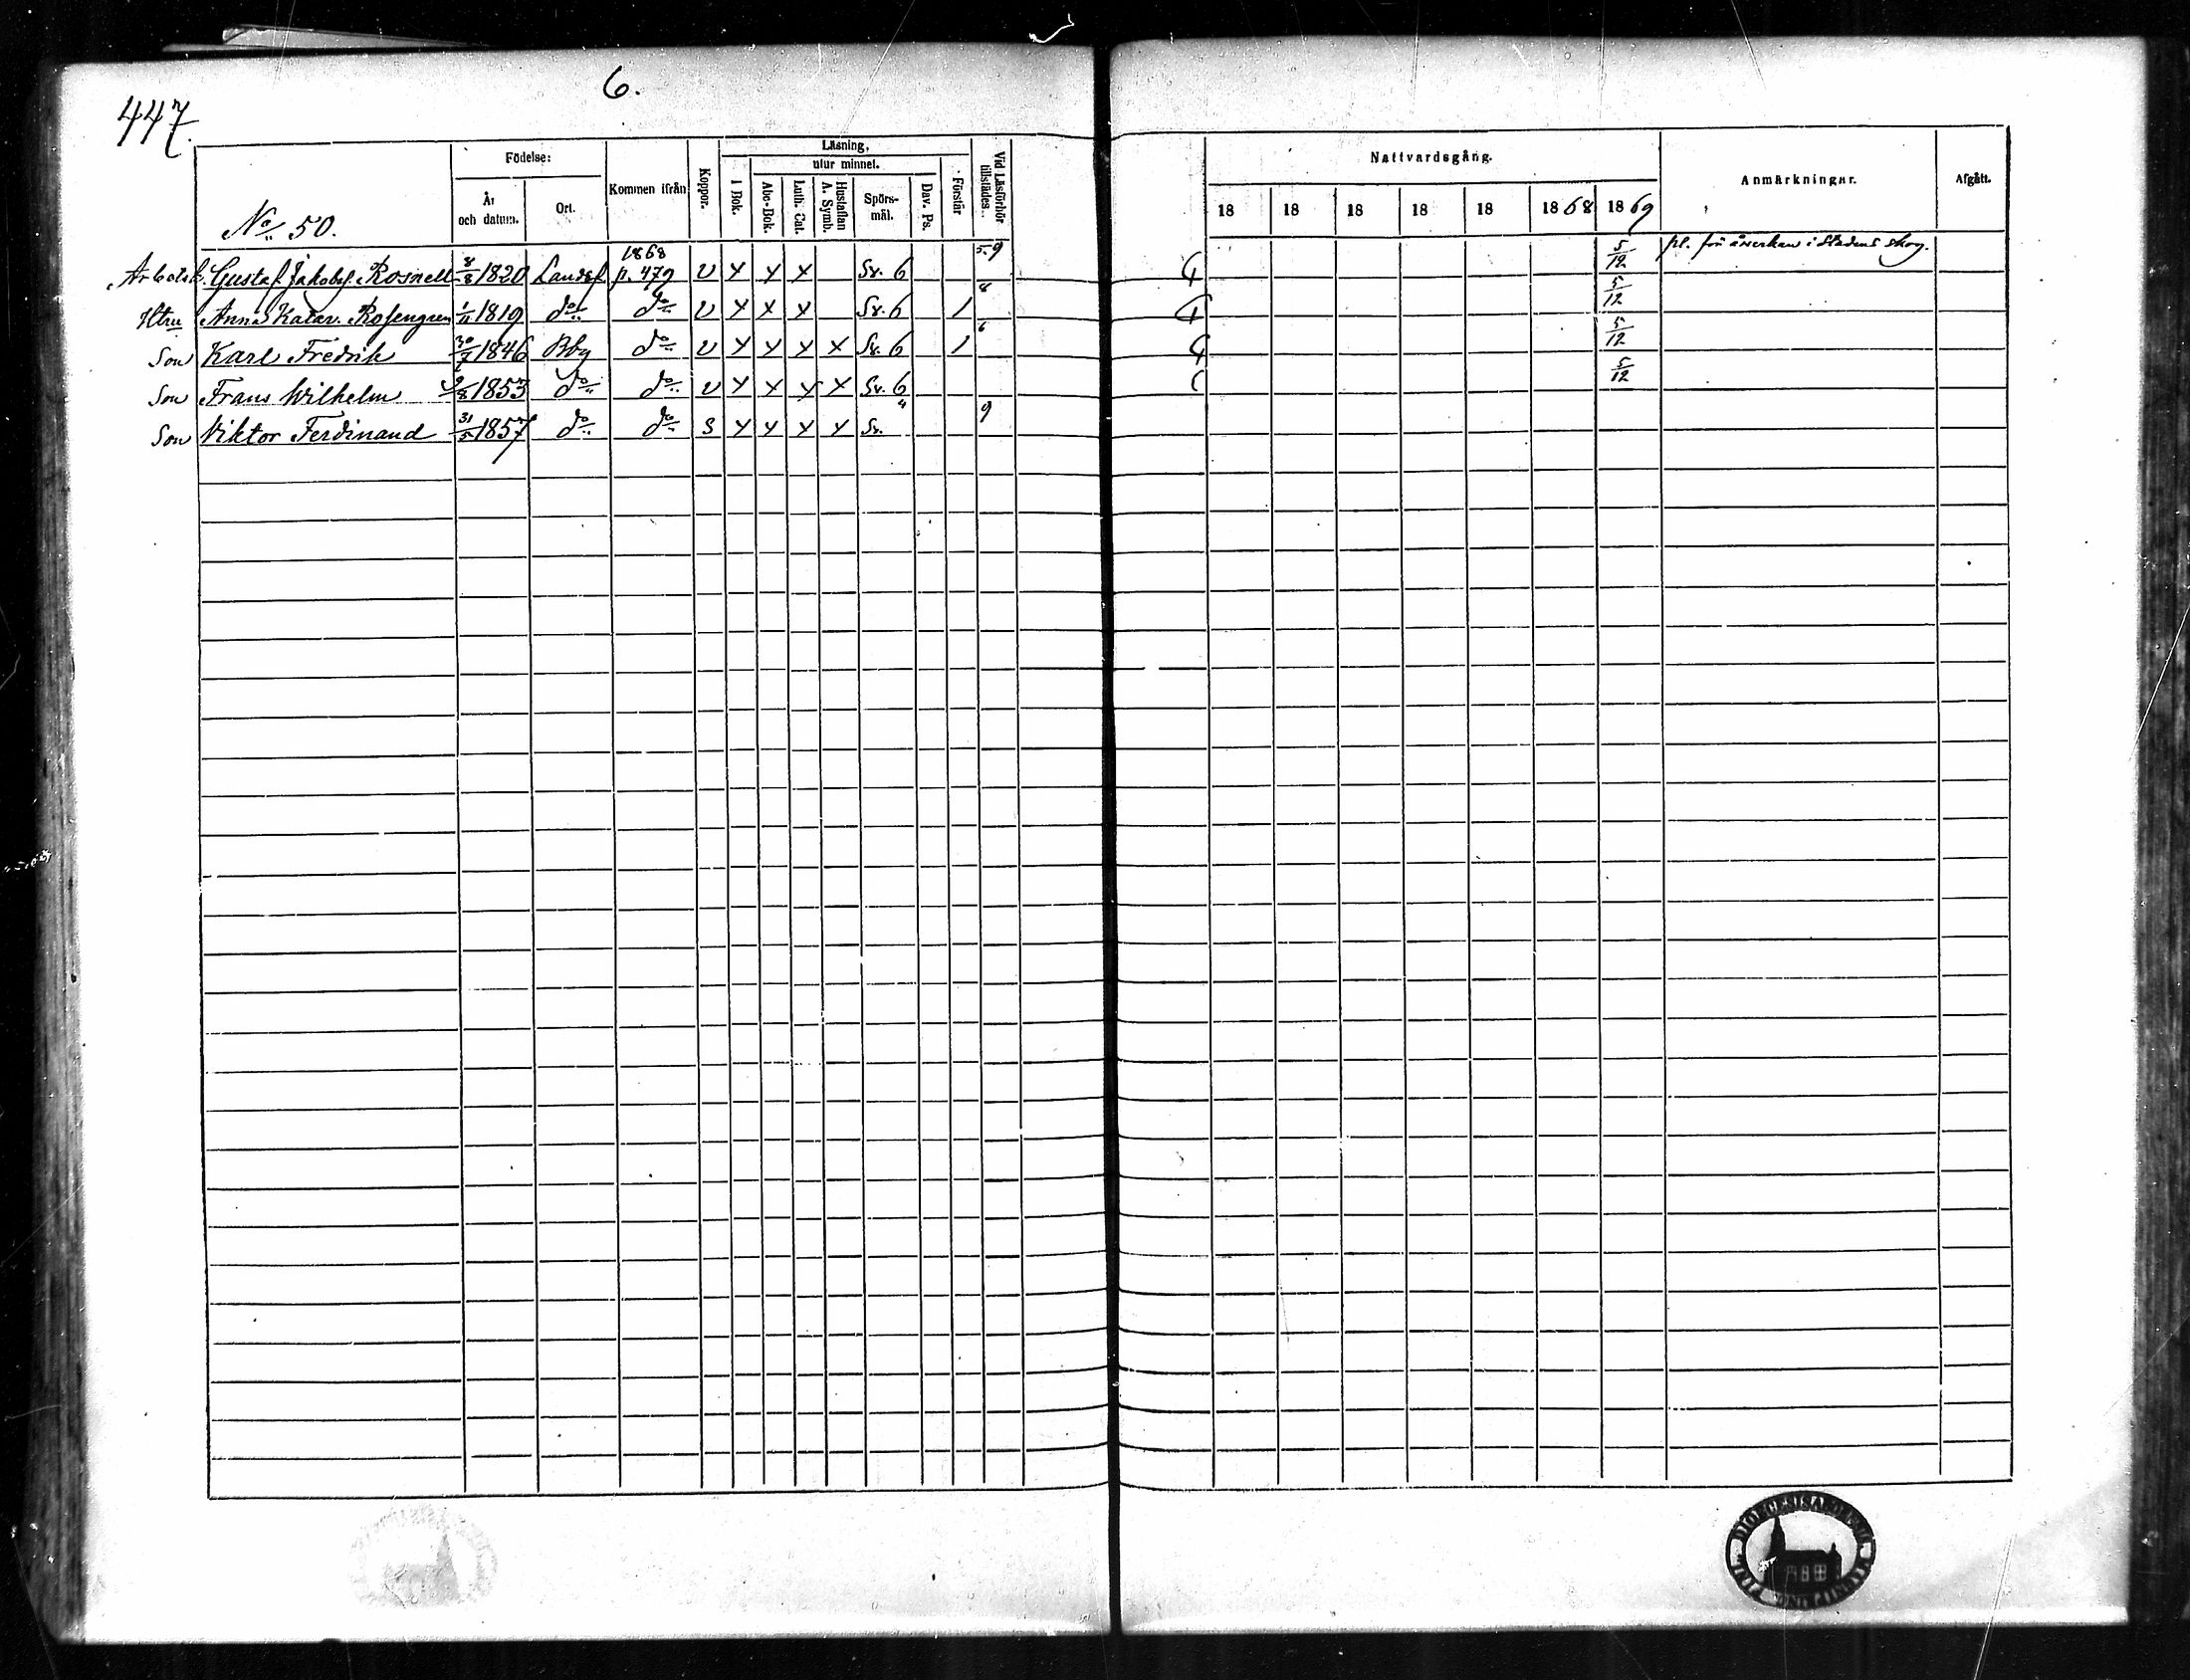 447.
6.
No 50.
Födelse:
År och datum.
Ort.
Kommen ifrån
Koppor.
Läsning,
utur minnet.
I Bok.
Abc-Bok.
Luth. Cat.
Hustaflan A. Symb.
Spörs-mål.
Dav. Ps.
Förstår
Vid Läsförhör tillstädes.
Nattvardsgång.
18 18 18 18 18 1868 1869
Anmärkningar.
Afgått.
1868 5.9 5/12 pl. för åverkan i Stadens skog.
Arbetsk. Gustaf Jakobss. Rosnell 8/8 1820 Landsf p. 479 v x x x Sv. 6
8 5/12
Hstru Anna Katar. Rosengren 1/11 1819 do do v x x x Sv. 6 1
6 5/12
Son Karl Fredrik 30/7 1846 Bbg do v x x x x Sv. 6 1
5/12
Son Frans Wilhelm 2/8 1853 do do v x x x x Sv. 6
4 9
Son Viktor Ferdinand 31/5 1857 do do s x x x x Sv.